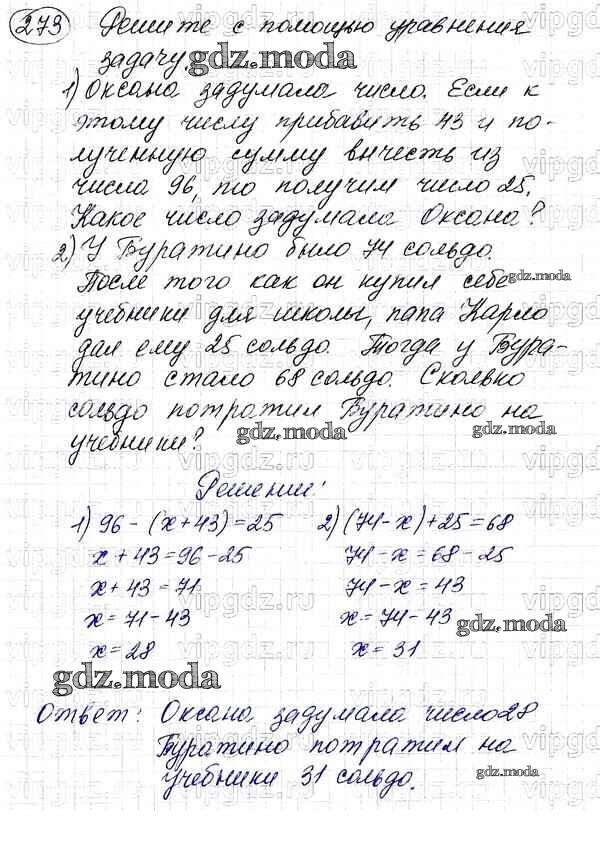 273 Решите с помощью уравнения
задачу.
1) Оксана задумала число. Если к
этому числу прибавить 43 и по-
лученную сумму вычесть из
числа 96, то получим число 25.
Какое число задумала Оксана?
2) У Буратино было 74 сольдо.
После того как он купил себе
учебники для школы, папа Карло
дал ему 25 сольдо. Тогда у Бура-
тино стало 68 сольдо. Сколько
сольдо потратил Буратино на
учебники?
Решение:
1) 96 - (x + 43) = 25
x + 43 = 96 - 25
x + 43 = 71
x = 71 - 43
x = 28
2) (74 - x) + 25 = 68
74 - x = 68 - 25
74 - x = 43
x = 74 - 43
x = 31
Ответ: Оксана задумала число 28
Буратино потратил на
учебники 31 сольдо.
gdz.moda
gdz.moda
gdz.moda
gdz.moda
gdz.moda
gdz.moda
gdz.moda
gdz.moda
vipgdz.ru